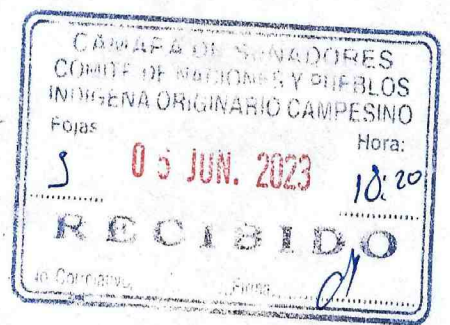 CAMARA DE SENADORES
COMITE DE NACIONES Y PUEBLOS
INDIGENA ORIGINARIO CAMPESINO
Fojas Hora:
05 JUN. 2023 18:20
RECIBIDO
Firma